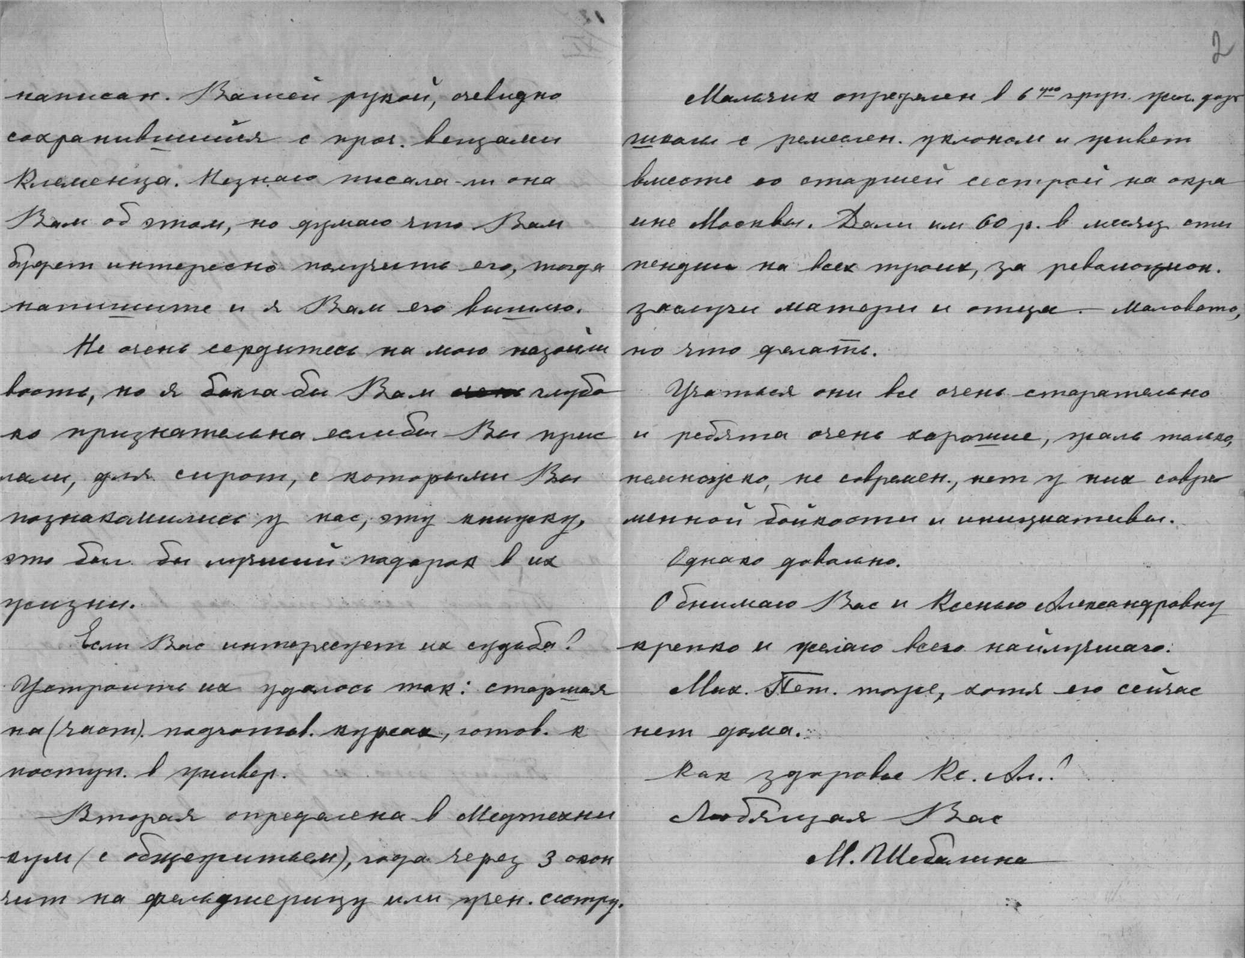 написан. Вашей рукой, очевидно
сохранившийся с проч. вещами
Клеменца. Незнаю писала-ли она
Вам об этом, но думаю что Вам
будет интересно получить его, тогда
напишите и я Вам его вышлю.
Не очень сердитесь на мою назойли
вость, но я была бы Вам глубо
ко признательна если бы Вы прис
лали, для сирот, с которыми Вы
познакомились у нас, эту книжку,
это был бы лучший подарок в их
жизни.
Если Вас интересует их судьба?
Устроить их удалось так: старшая
на (част). подготов. курсах, готов. к
поступ. в универ.
Вторая определена в Медтехни
кум (с общежитьем), года через 3 окон
чит на фельдшерицу или учен. сестру.
2
Мальчик определен в 6 груп.
школы с ремеслен. уклоном и живет
вместе со старшей сестрой на окра
ине Москвы. Дали им 60 р. в месяц сти
пендии на всех троих, за революцион.
заслуги матери и отца — маловато,
но что делать.
Учаться они все очень старательно
и ребята очень хорошие, жаль только,
немножко, не современ., нет у них совре
менной бойкости и инициативы.
Однако довольно.
Обнимаю Вас и Ксенью Александровну
крепко и желаю всего наилучшаго.
Мих. Пет. тоже, хотя его сейчас
нет дома.
Как здоровье Кс. Ал.?
Любящая Вас
М. Шебалина